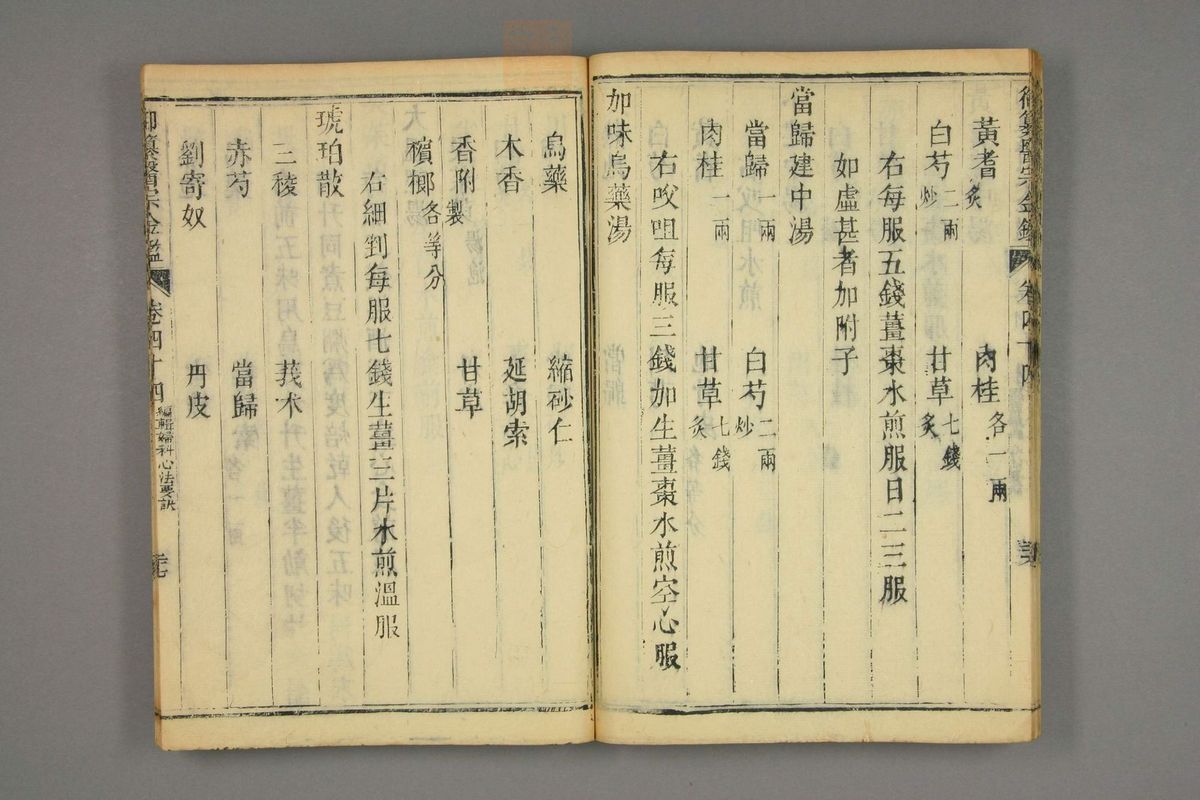 御纂醫宗金鑑 卷四十四
黃耆炙 肉桂各一兩
白芍炒二兩 甘草炙七錢
右每服五錢薑棗水煎服日二三服
如虛甚者加附子
當歸建中湯
當歸一兩 白芍炒二兩
肉桂一兩 甘草炙七錢
右㕮咀每服三錢加生薑棗水煎空心服
加味烏藥湯
烏藥 縮砂仁
木香 延胡索
香附製 甘草
檳榔各等分
右細剉每服七錢生薑三片水煎溫服
琥珀散
三稜 莪朮
赤芍 當歸
劉寄奴 丹皮
御纂醫宗金鑑 卷四十四 編輯婦科心法要訣